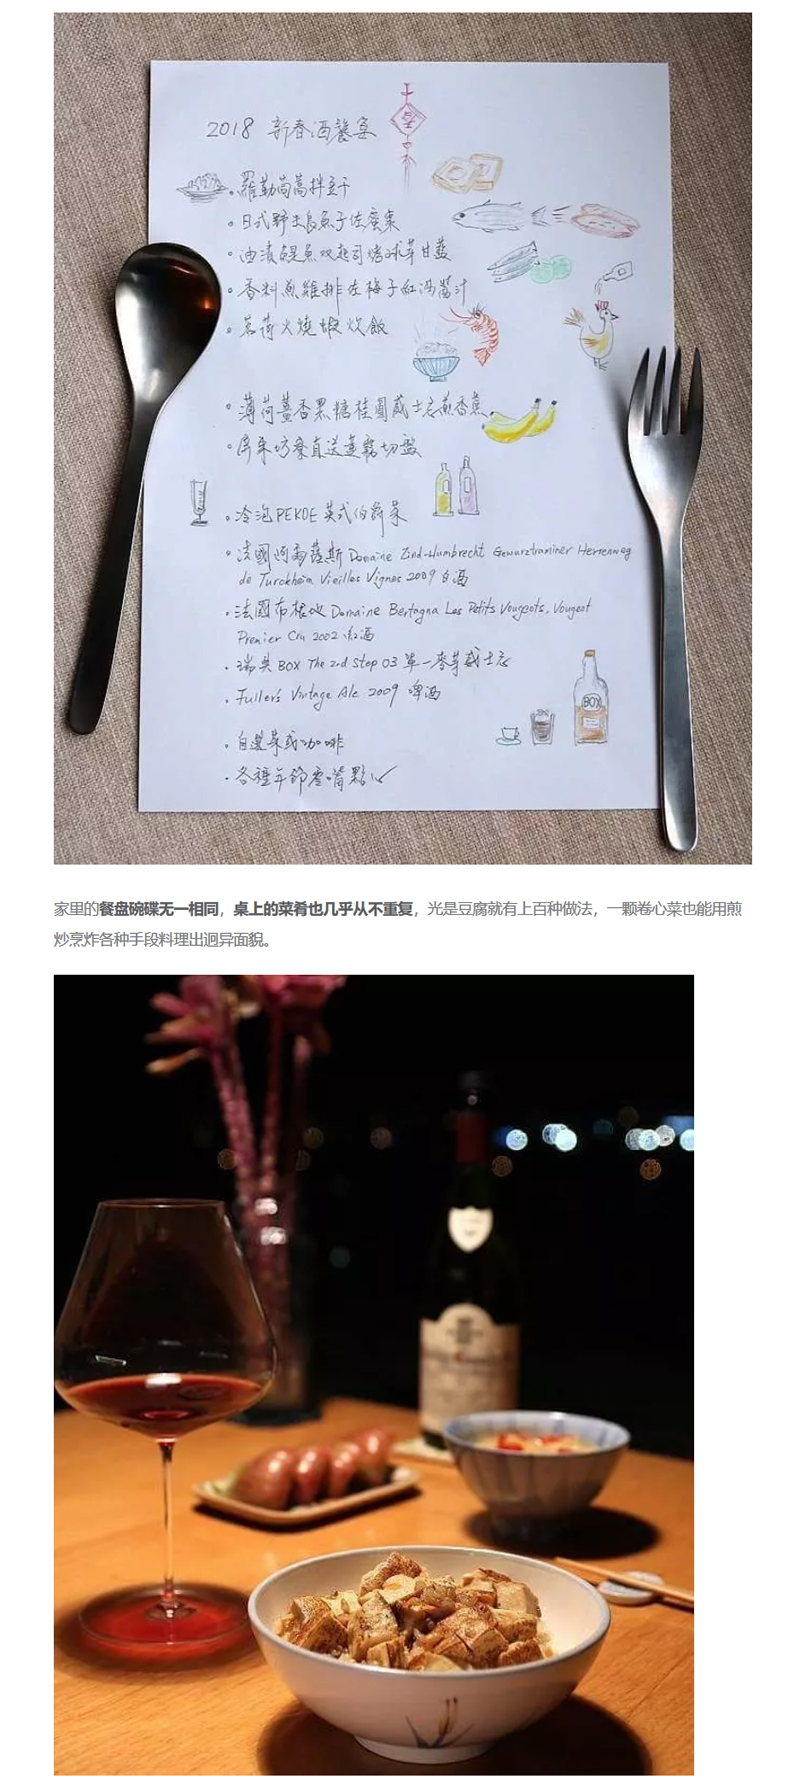 2018 新春酒饕宴
羅勒茼蒿拌豆干
日式野生烏魚子佐蜜棗
油漬鯷魚双起司烤球芽甘藍
香料煎雞排佐梅子紅酒醬汁
茗荷火燒蝦炊飯
薄荷薑香黑糖桂圓威士忌煎香蕉
屏東坊寮直送蓮霧切盤
冷泡PEKOE英式伯爵茶
法國阿爾薩斯 Domaine Zind-Humbrecht Gewurztraminer Herrenweg
de Turckheim Vieilles Vignes 2009 白酒
法國布根地 Domaine Bertagna Les Petits Vougeots, Vougeot
Premier Cru 2002 紅酒
瑞典 BOX The 2nd Step 03 單一麥芽威士忌
Fuller's Vintage Ale 2009 啤酒
BOX
自選茶或咖啡
各種年節零嘴點心
家里的餐盘碗碟无一相同，桌上的菜肴也几乎从不重复，光是豆腐就有上百种做法，一颗卷心菜也能用煎
炒烹炸各种手段料理出迥异面貌。